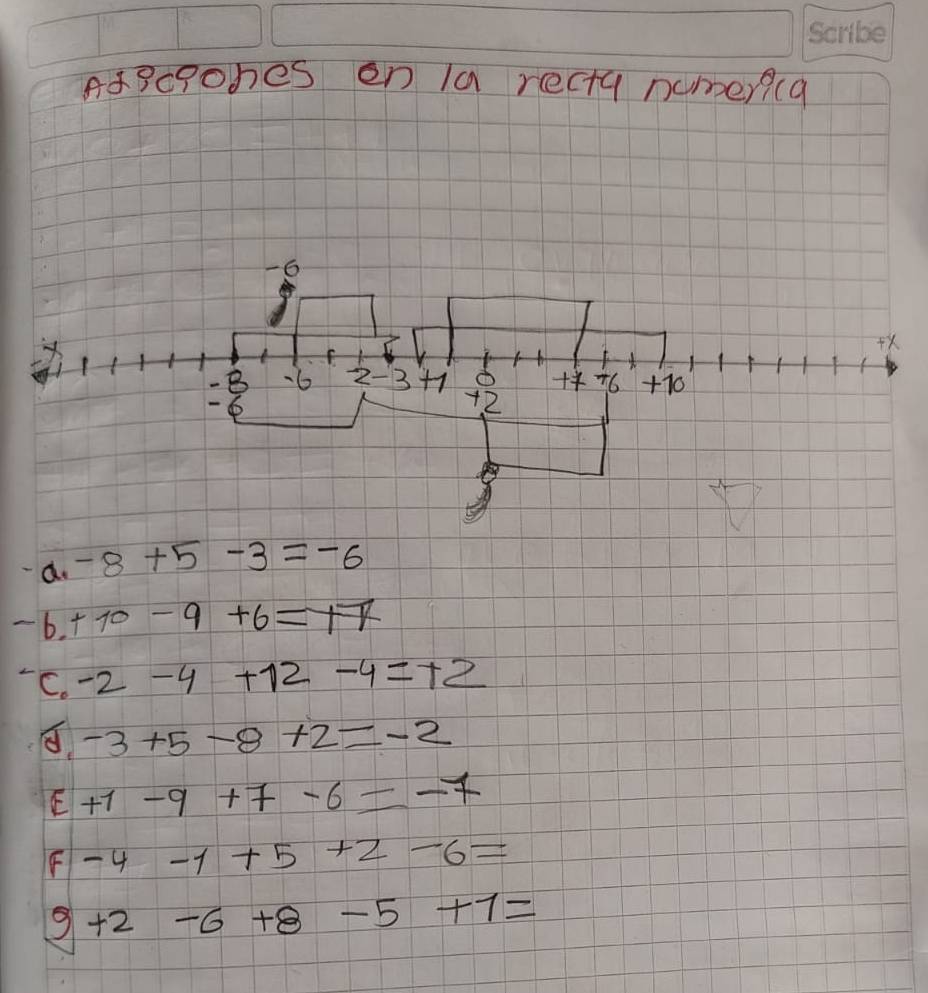 Scribe
Adiciones en la recta numerica
-6
-x +x
-8 -6 -2 -3 +1 0 +7 +6 +10
-6 +2
-a. -8 +5 -3 = -6
-b. +10 -9 +6 = +7
-c. -2 -4 +12 -4 = +2
d. -3 +5 -8 +2 = -2
E +1 -9 +7 -6 = -7
F -4 -1 +5 +2 -6 =
g +2 -6 +8 -5 +1 =